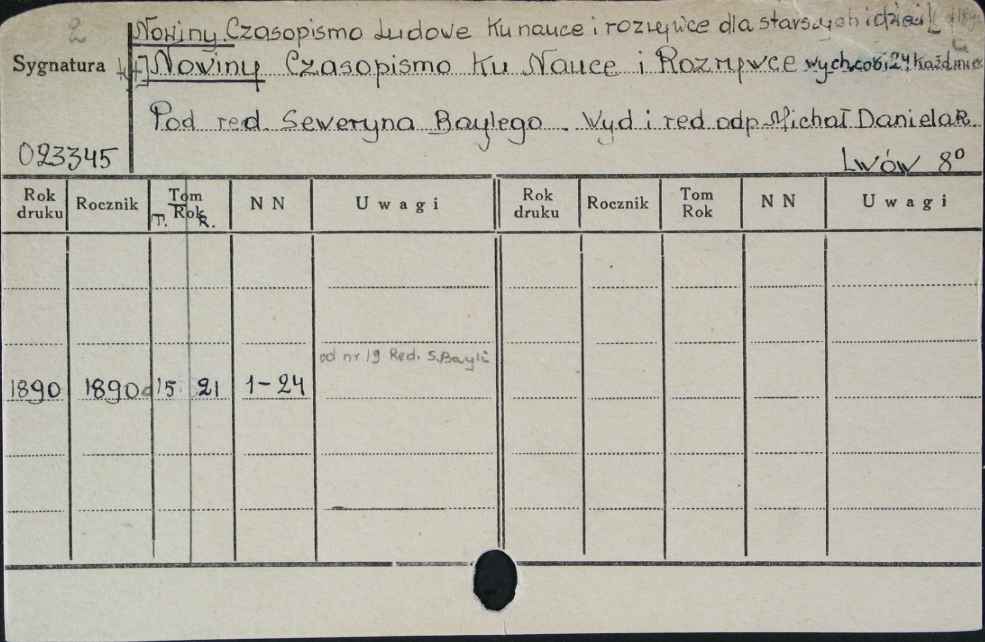 2 Nowiny Czasopismo Ludowe Ku nauce i rozrywce dla starszych i dzieci
Sygnatura Nowiny Czasopismo Ku Nauce i Rozrywce wych. co 8i24 każd mies
Pod red Seweryna Baylego. Wyd i red odp Michał Danielak.
023345 Lwów 8°
Rok druku Rocznik Tom Rok T. R. NN Uwagi Rok druku Rocznik Tom Rok NN Uwagi
od nr 19 Red. S. Bayli
1890 1890 15 21 1-24